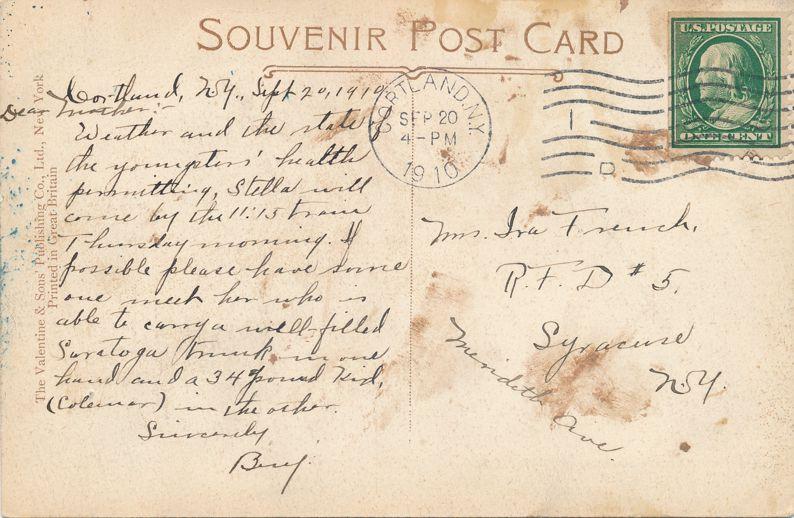 SOUVENIR POST CARD
U.S. POSTAGE
ONE CENT
CORTLAND, N.Y.
SEP 20
4-PM
1910
The Valentine & Sons' Publishing Co., Ltd., New York
Printed in Great Britain
Cortland, N.Y., Sept 20, 1910
Dear Mother:-
Weather and the state of
the youngsters' health
permitting, Stella will
come by the 11:15 train
Thursday morning. If
possible please have some
one meet her who is
able to carry a well-filled
Saratoga trunk in one
hand and a 34 pound kid,
(Coleman) in the other.
Sincerely
Benj.
Mrs. Ira French,
R.F.D # 5,
Syracuse
N.Y.
Merideth Ave.